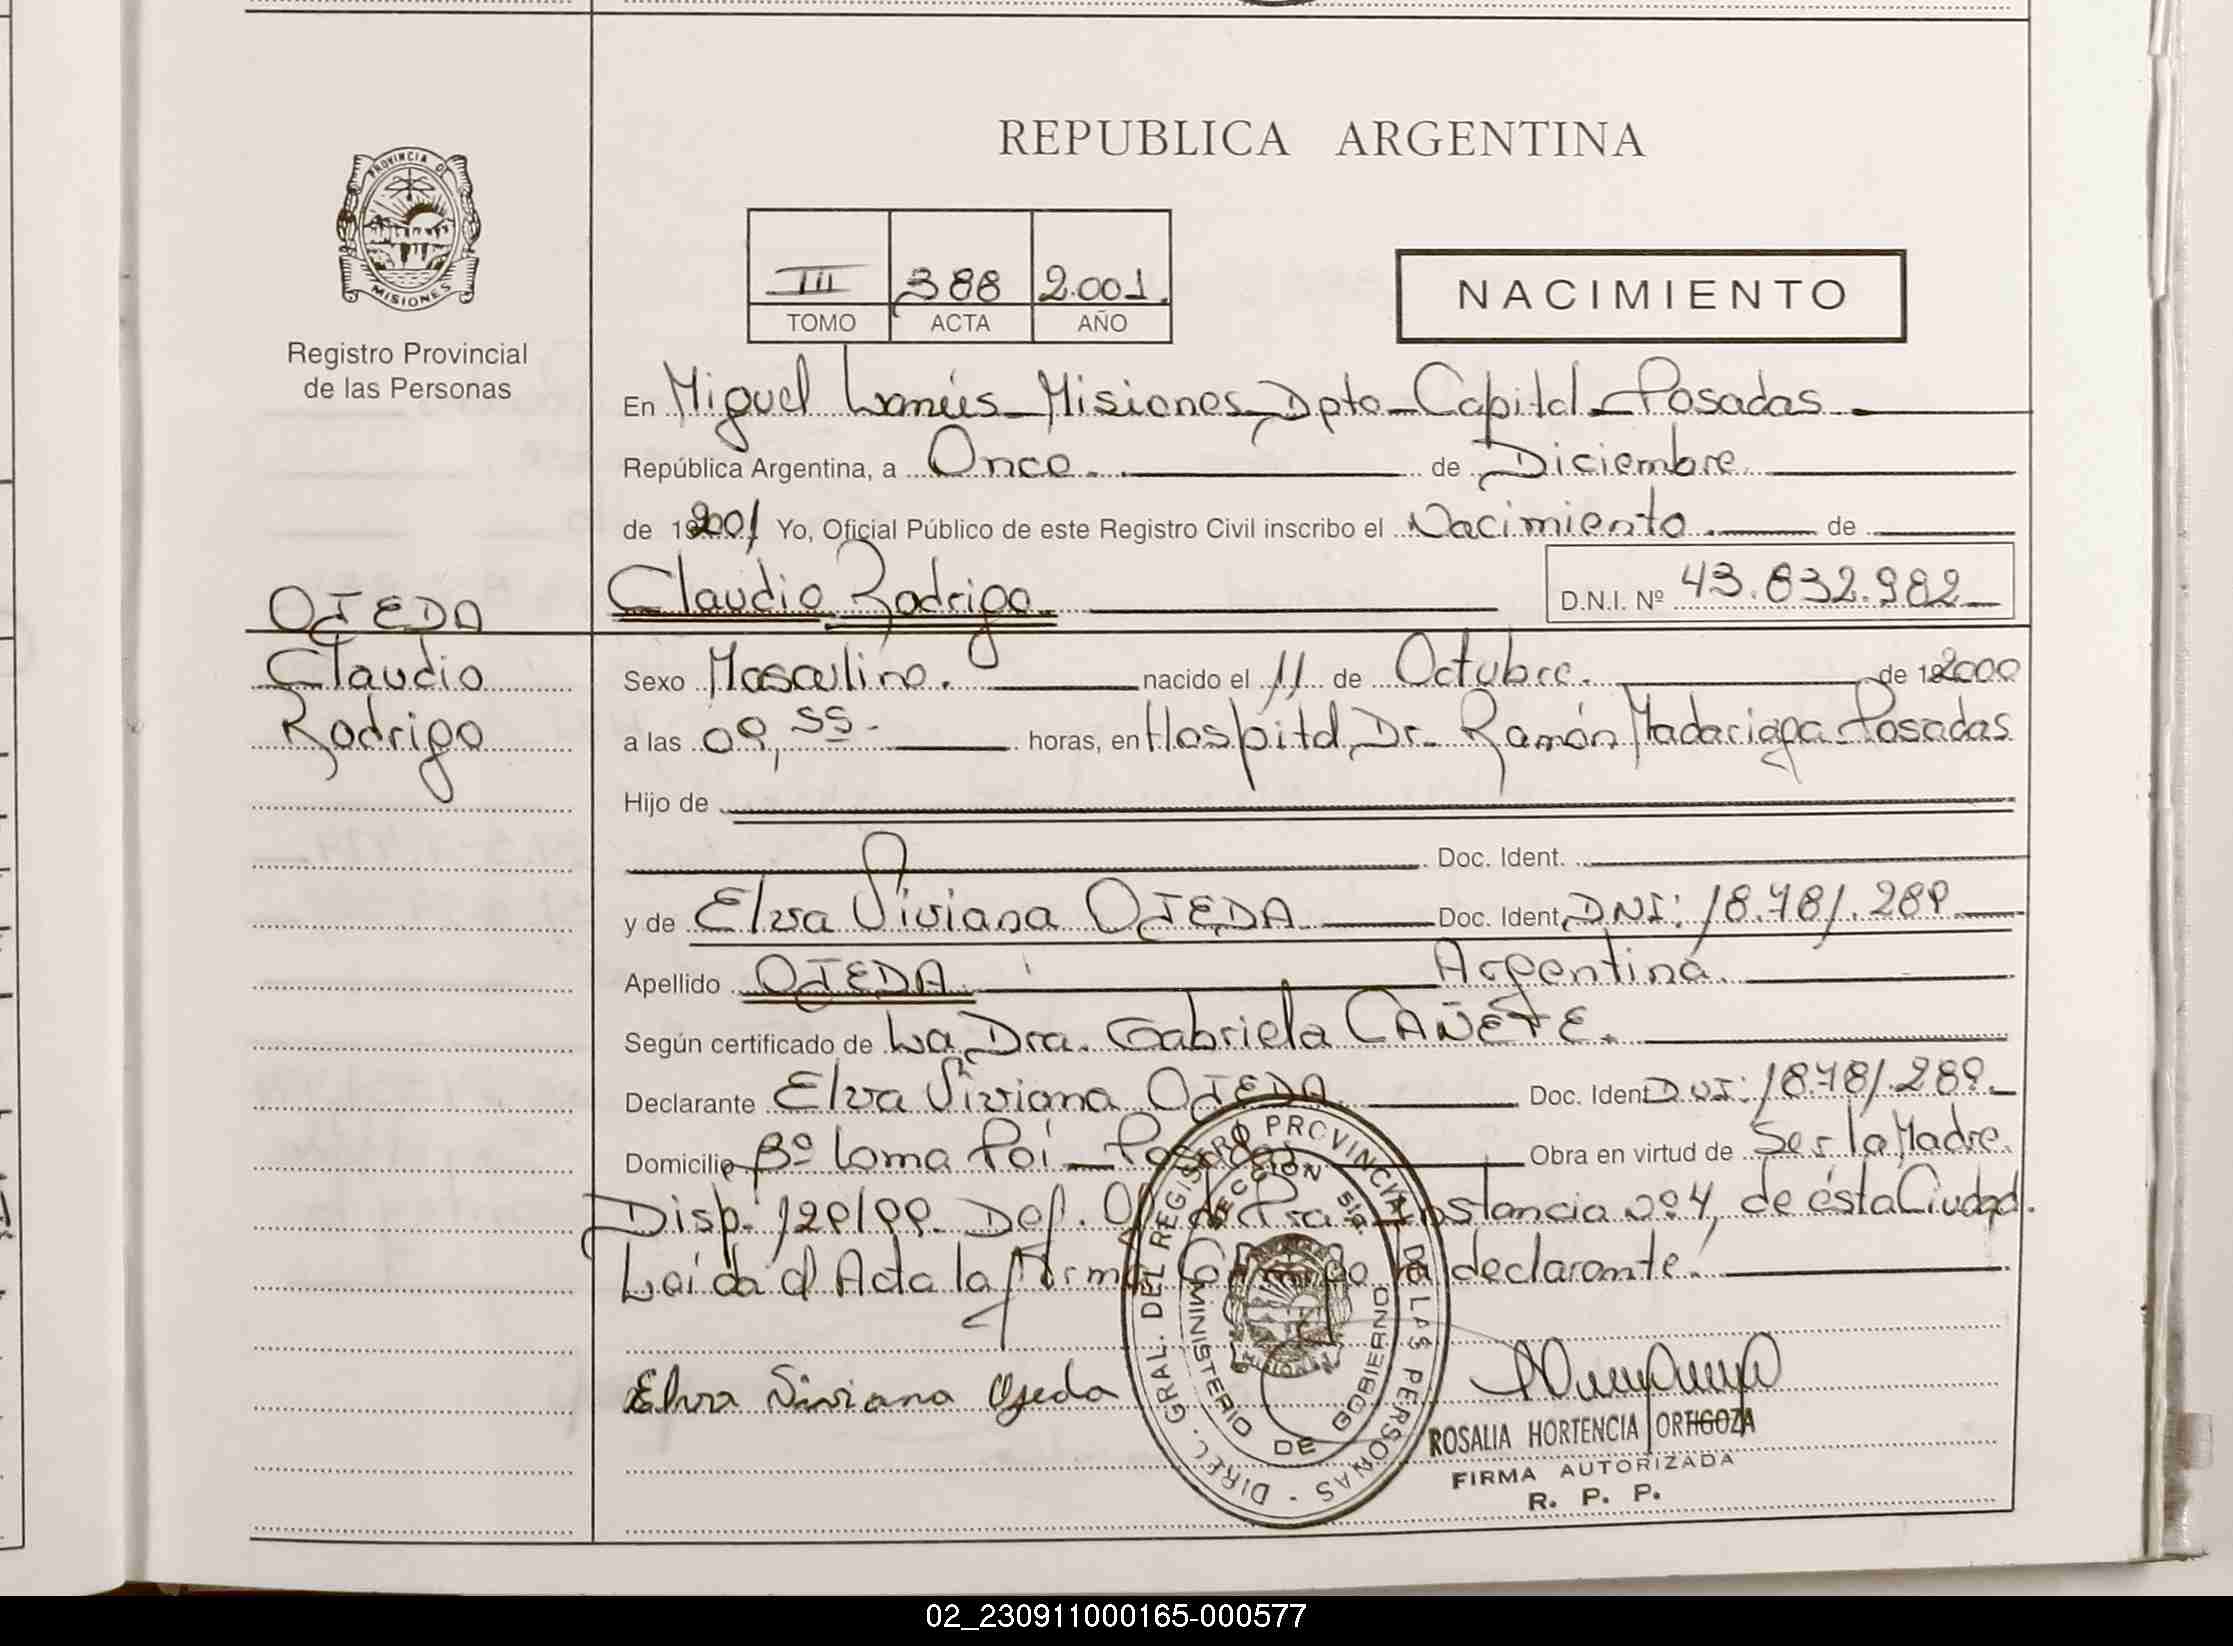 REPUBLICA ARGENTINA
PROVINCIA DE
MISIONES
Registro Provincial
de las Personas
III 388 2.001.
TOMO ACTA AÑO
NACIMIENTO
En Miguel Lanús - Misiones, Dpto - Capital - Posadas
República Argentina, a Once. de Diciembre
de 2001 Yo, Oficial Público de este Registro Civil inscribo el Nacimiento. de
Claudio Rodrigo. D.N.I. Nº 43.832.982
OJEDA
Claudio
Rodrigo
Sexo Masculino. nacido el 11 de Octubre. de 2000
a las 09,55 - horas, en Hospital Dr. Ramón Madariaga - Posadas
Hijo de
Doc. Ident.
y de Elva Viviana OJEDA Doc. Ident. DNI: 18.781.289
Apellido OJEDA Argentina.
Según certificado de La Dra. Gabriela CAÑETE.
Declarante Elva Viviana OJEDA Doc. Ident DNI: 18.781.289.
Domicilio Bº Loma Poí - Posadas Obra en virtud de Ser la Madre.
Disp. 129/99. Def. Of. de Pra. Instancia nº 4, de ésta Ciudad.
Leída el Acta la firma Conmigo la declarante.
Elva Viviana Ojeda
DIREC. GRAL. DEL REGISTRO PROVINCIAL DE LAS PERSONAS
MINISTERIO DE GOBIERNO
ROSALIA HORTENCIA ORTIGOZA
FIRMA AUTORIZADA
R. P. P.
02_230911000165-000577